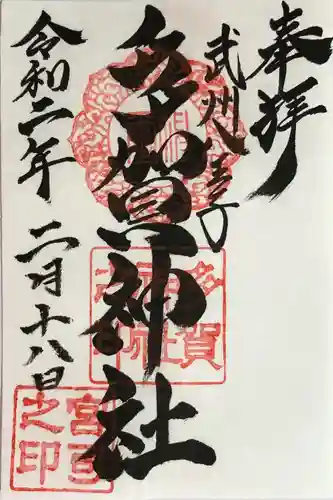 奉拝
武州八王子
多賀神社
令和二年
二月十八日
多賀
神社
之印
宮司
之印